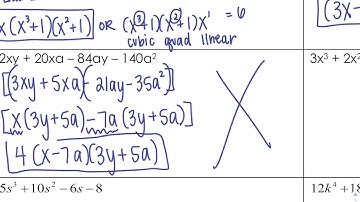 x(x³+1)(x²+1) OR (x³+1)(x²+1)x¹ = 6
cubic quad linear
(3x-
2xy + 20xa − 84ay − 140a²
3x³ + 2x²
[(3xy+5xa)-21ay-35a²)]
[x(3y+5a)-7a(3y+5a)]
4(x-7a)(3y+5a)
5s³ + 10s² − 6s − 8
12k⁴ + 18